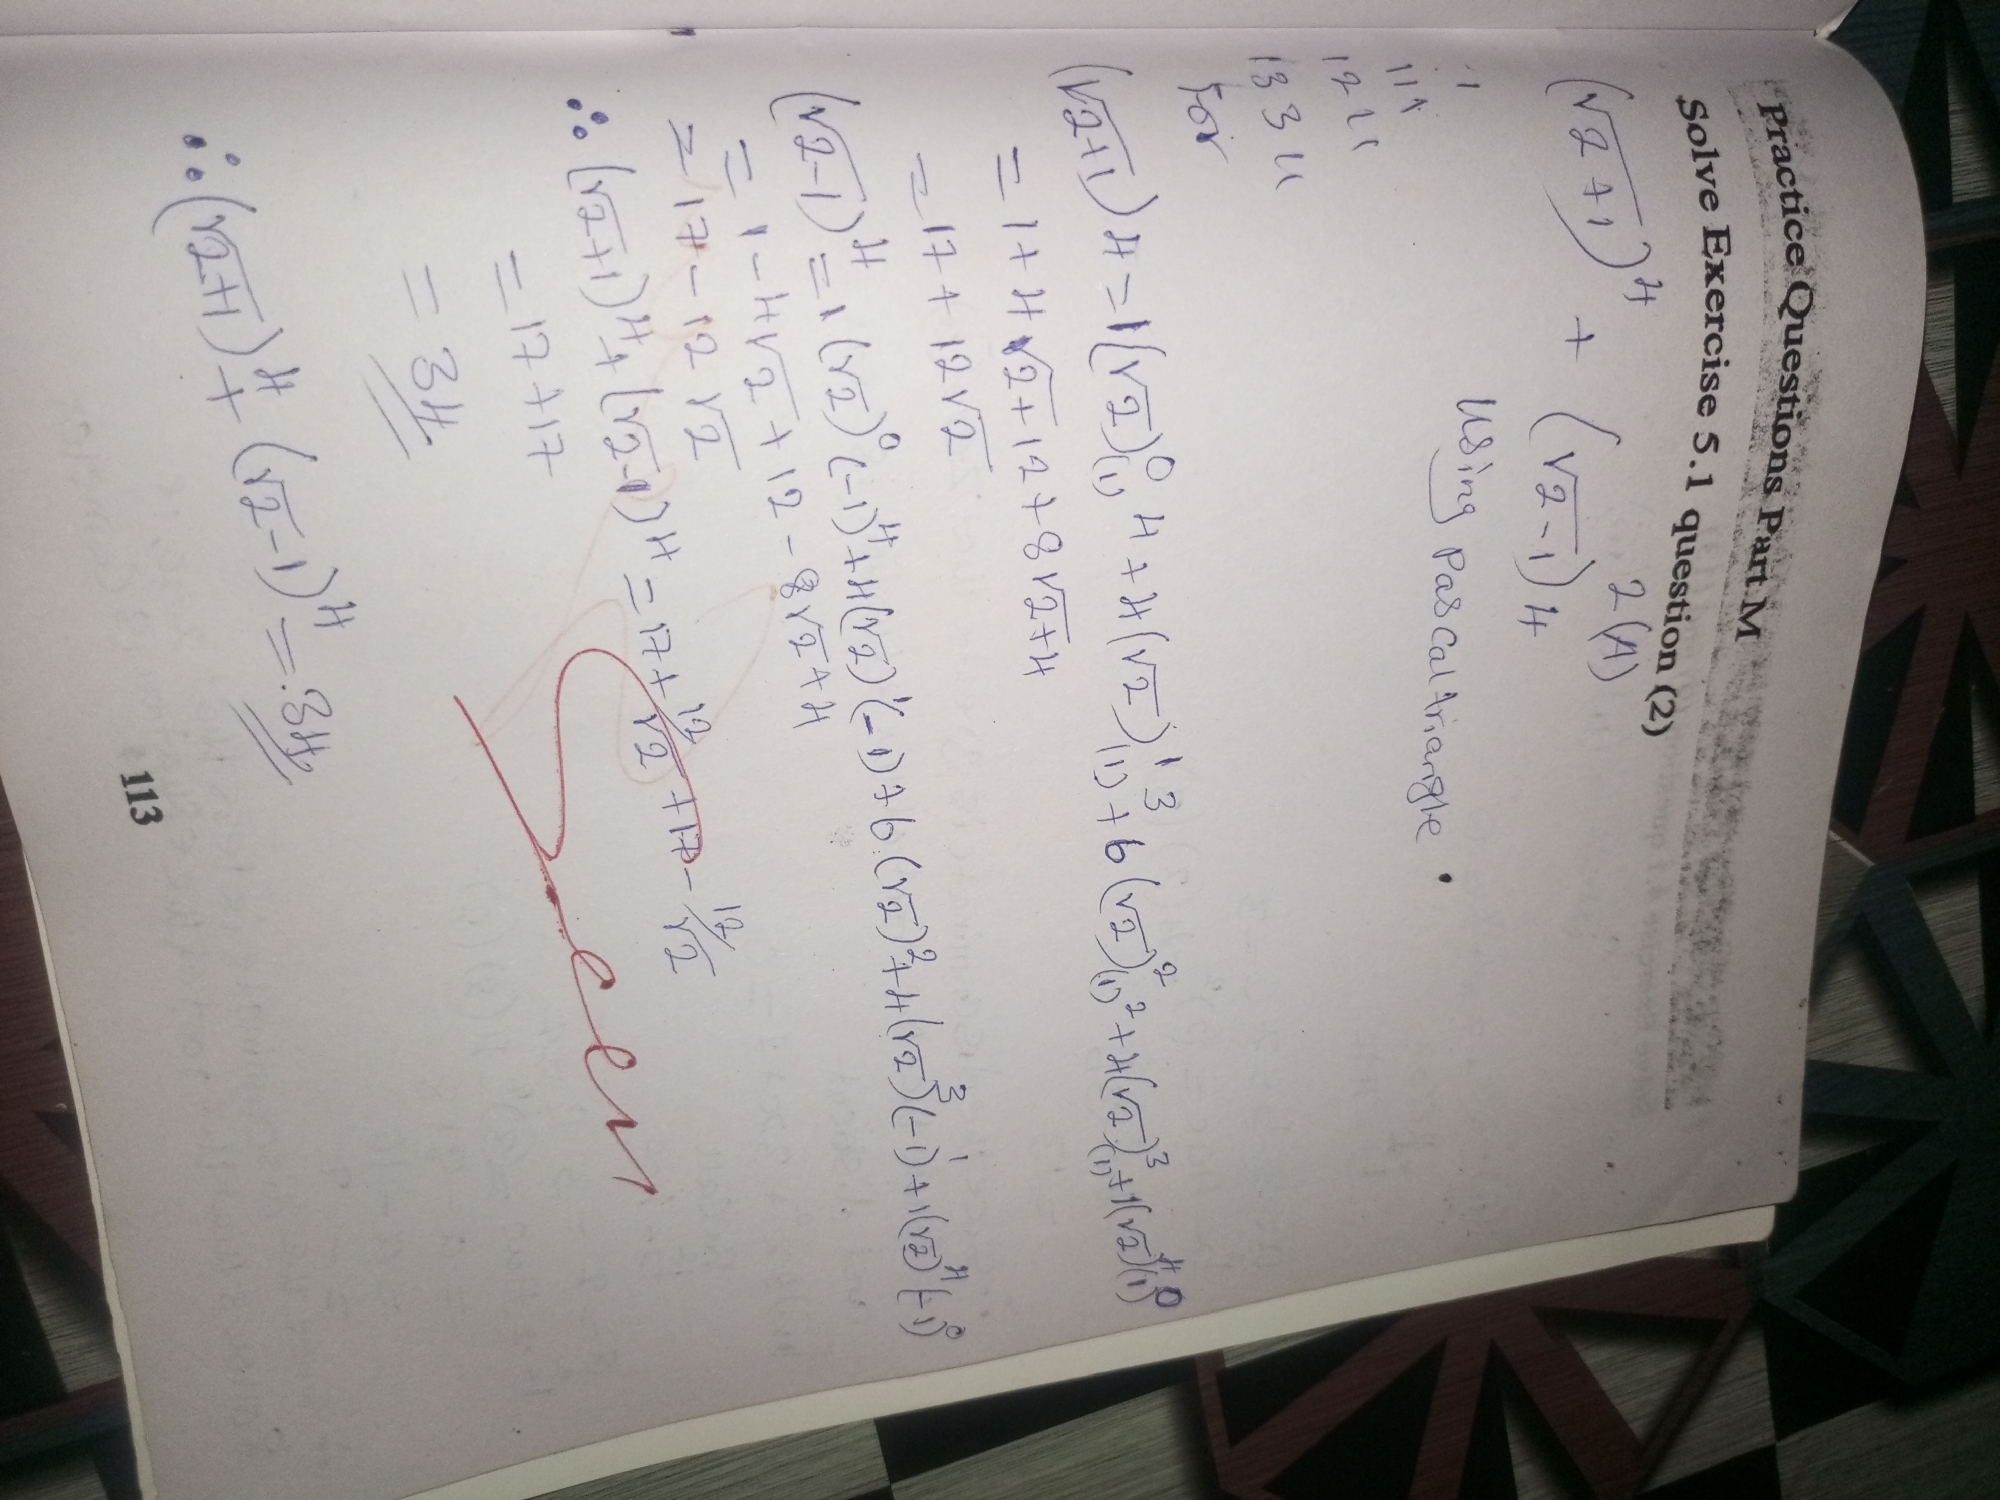 Practice Questions Part M
Solve Exercise 5.1 question (2)
2(A)
(√2+1)⁴ + (√2-1)⁴
Using Pascal triangle.
1
1 1
1 2 1
1 3 3 1
for
(√2+1)4 = 1(√2)⁰(1)⁴ + 4(√2)¹(1)³ + 6(√2)²(1)² + 4(√2)³(1) + 1(√2)⁴(1)⁰
= 1 + 4√2 + 12 + 8√2 + 4
= 17 + 12√2
(√2-1)⁴ = 1(√2)⁰(-1)⁴ + 4(√2)¹(-1) + 6(√2)² + 4(√2)³(-1)¹ + 1(√2)⁴(-1)⁰
= 1 - 4√2 + 12 - 8√2 + 4
= 17 - 12√2
∴ (√2+1)⁴ + (√2-1)⁴ = 17 + 12√2 + 17 - 12√2
= 17 + 17
= 34
∴ (√2+1)⁴ + (√2-1)⁴ = 34
Seen
113